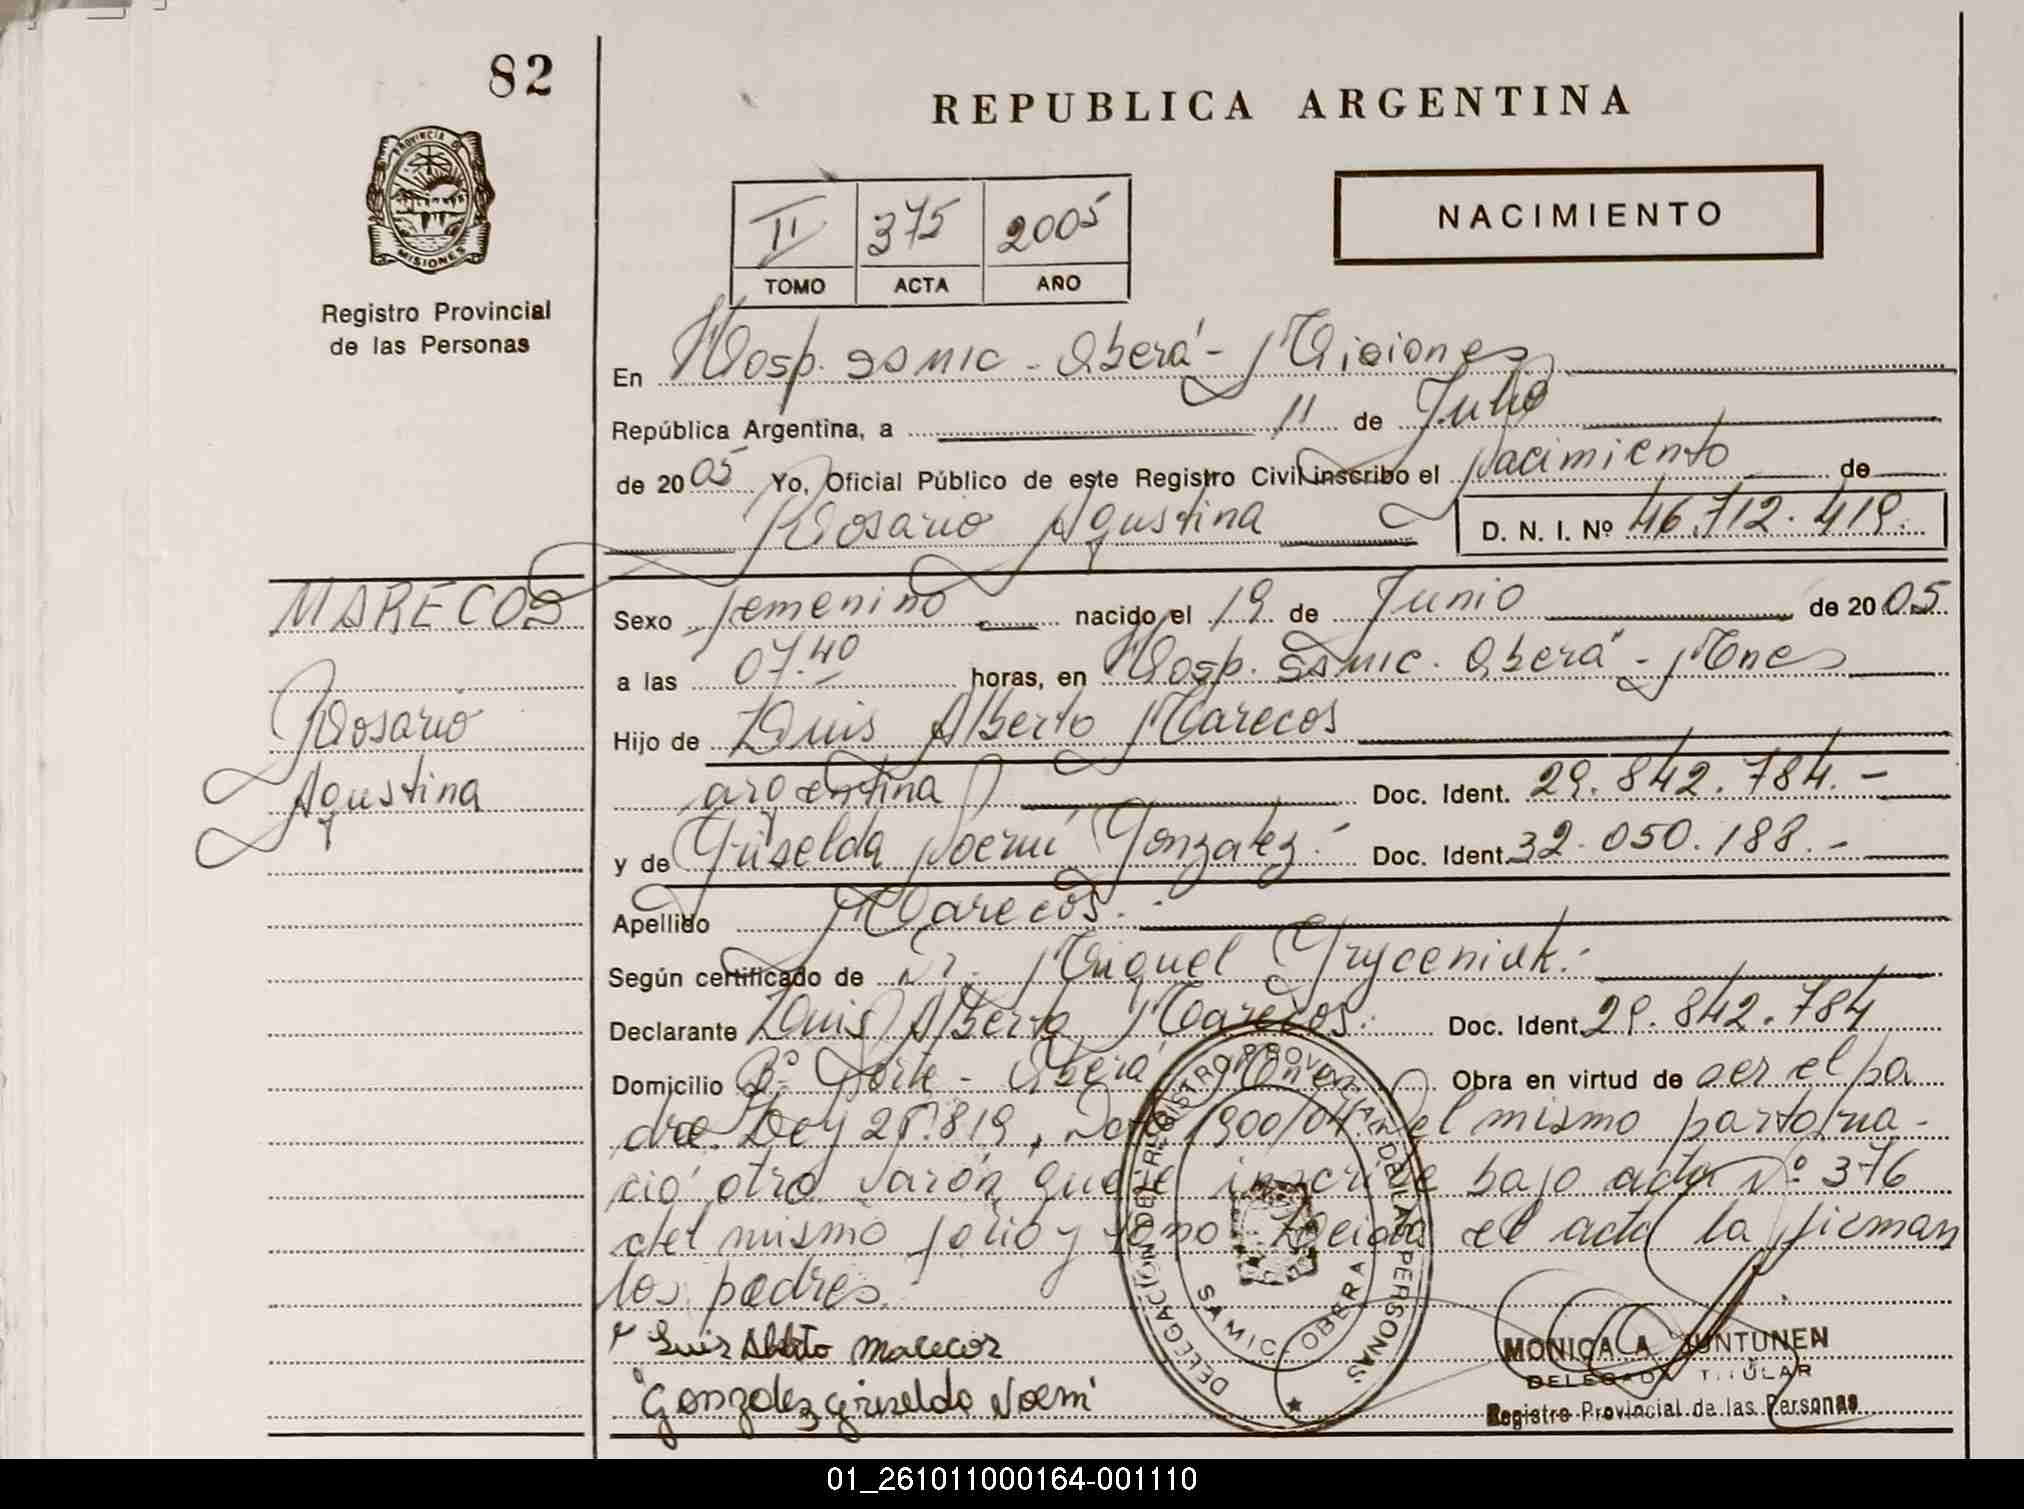 82
REPUBLICA ARGENTINA
PROVINCIA DE
MISIONES
Registro Provincial
de las Personas
II 375 2005
TOMO ACTA AÑO
NACIMIENTO
En Hosp. SAMIC - Oberá - Misiones
República Argentina, a 11 de Julio
de 2005 Yo, Oficial Público de este Registro Civil inscribo el nacimiento de
Rosario Agustina D. N. I. Nº 46.712.419.
MARECOS
Rosario
Agustina
Sexo femenino nacido el 19 de Junio de 2005
a las 07.40 horas, en Hosp. SAMIC. Oberá - Mnes
Hijo de Luis Alberto Marecos
argentina Doc. Ident. 29.842.784.-
y de Griselda Noemí González.- Doc. Ident. 32.050.188.-
Apellido Marecos.-
Según certificado de Dr. Miguel Gryceniuk.-
Declarante Luis Alberto Marecos. Doc. Ident. 29.842.784
Domicilio Bº Norte - Oberá Mnes Obra en virtud de ser el pa
dre. Ley 25.819, 1900/04. Del mismo parto na-
ció otro varón que se inscribe bajo acta Nº 376
del mismo folio y tomo Leída el acta la firman
los padres.
Luis Alberto Marecos
Gonzalez Griselda Noemi
DELEGACIÓN DEL REGISTRO PROVINCIAL DE LAS PERSONAS
SAMIC OBERA
MONICA A JUNTUNEN
DELEGADA TITULAR
Registro Provincial de las Personas
01_261011000164-001110